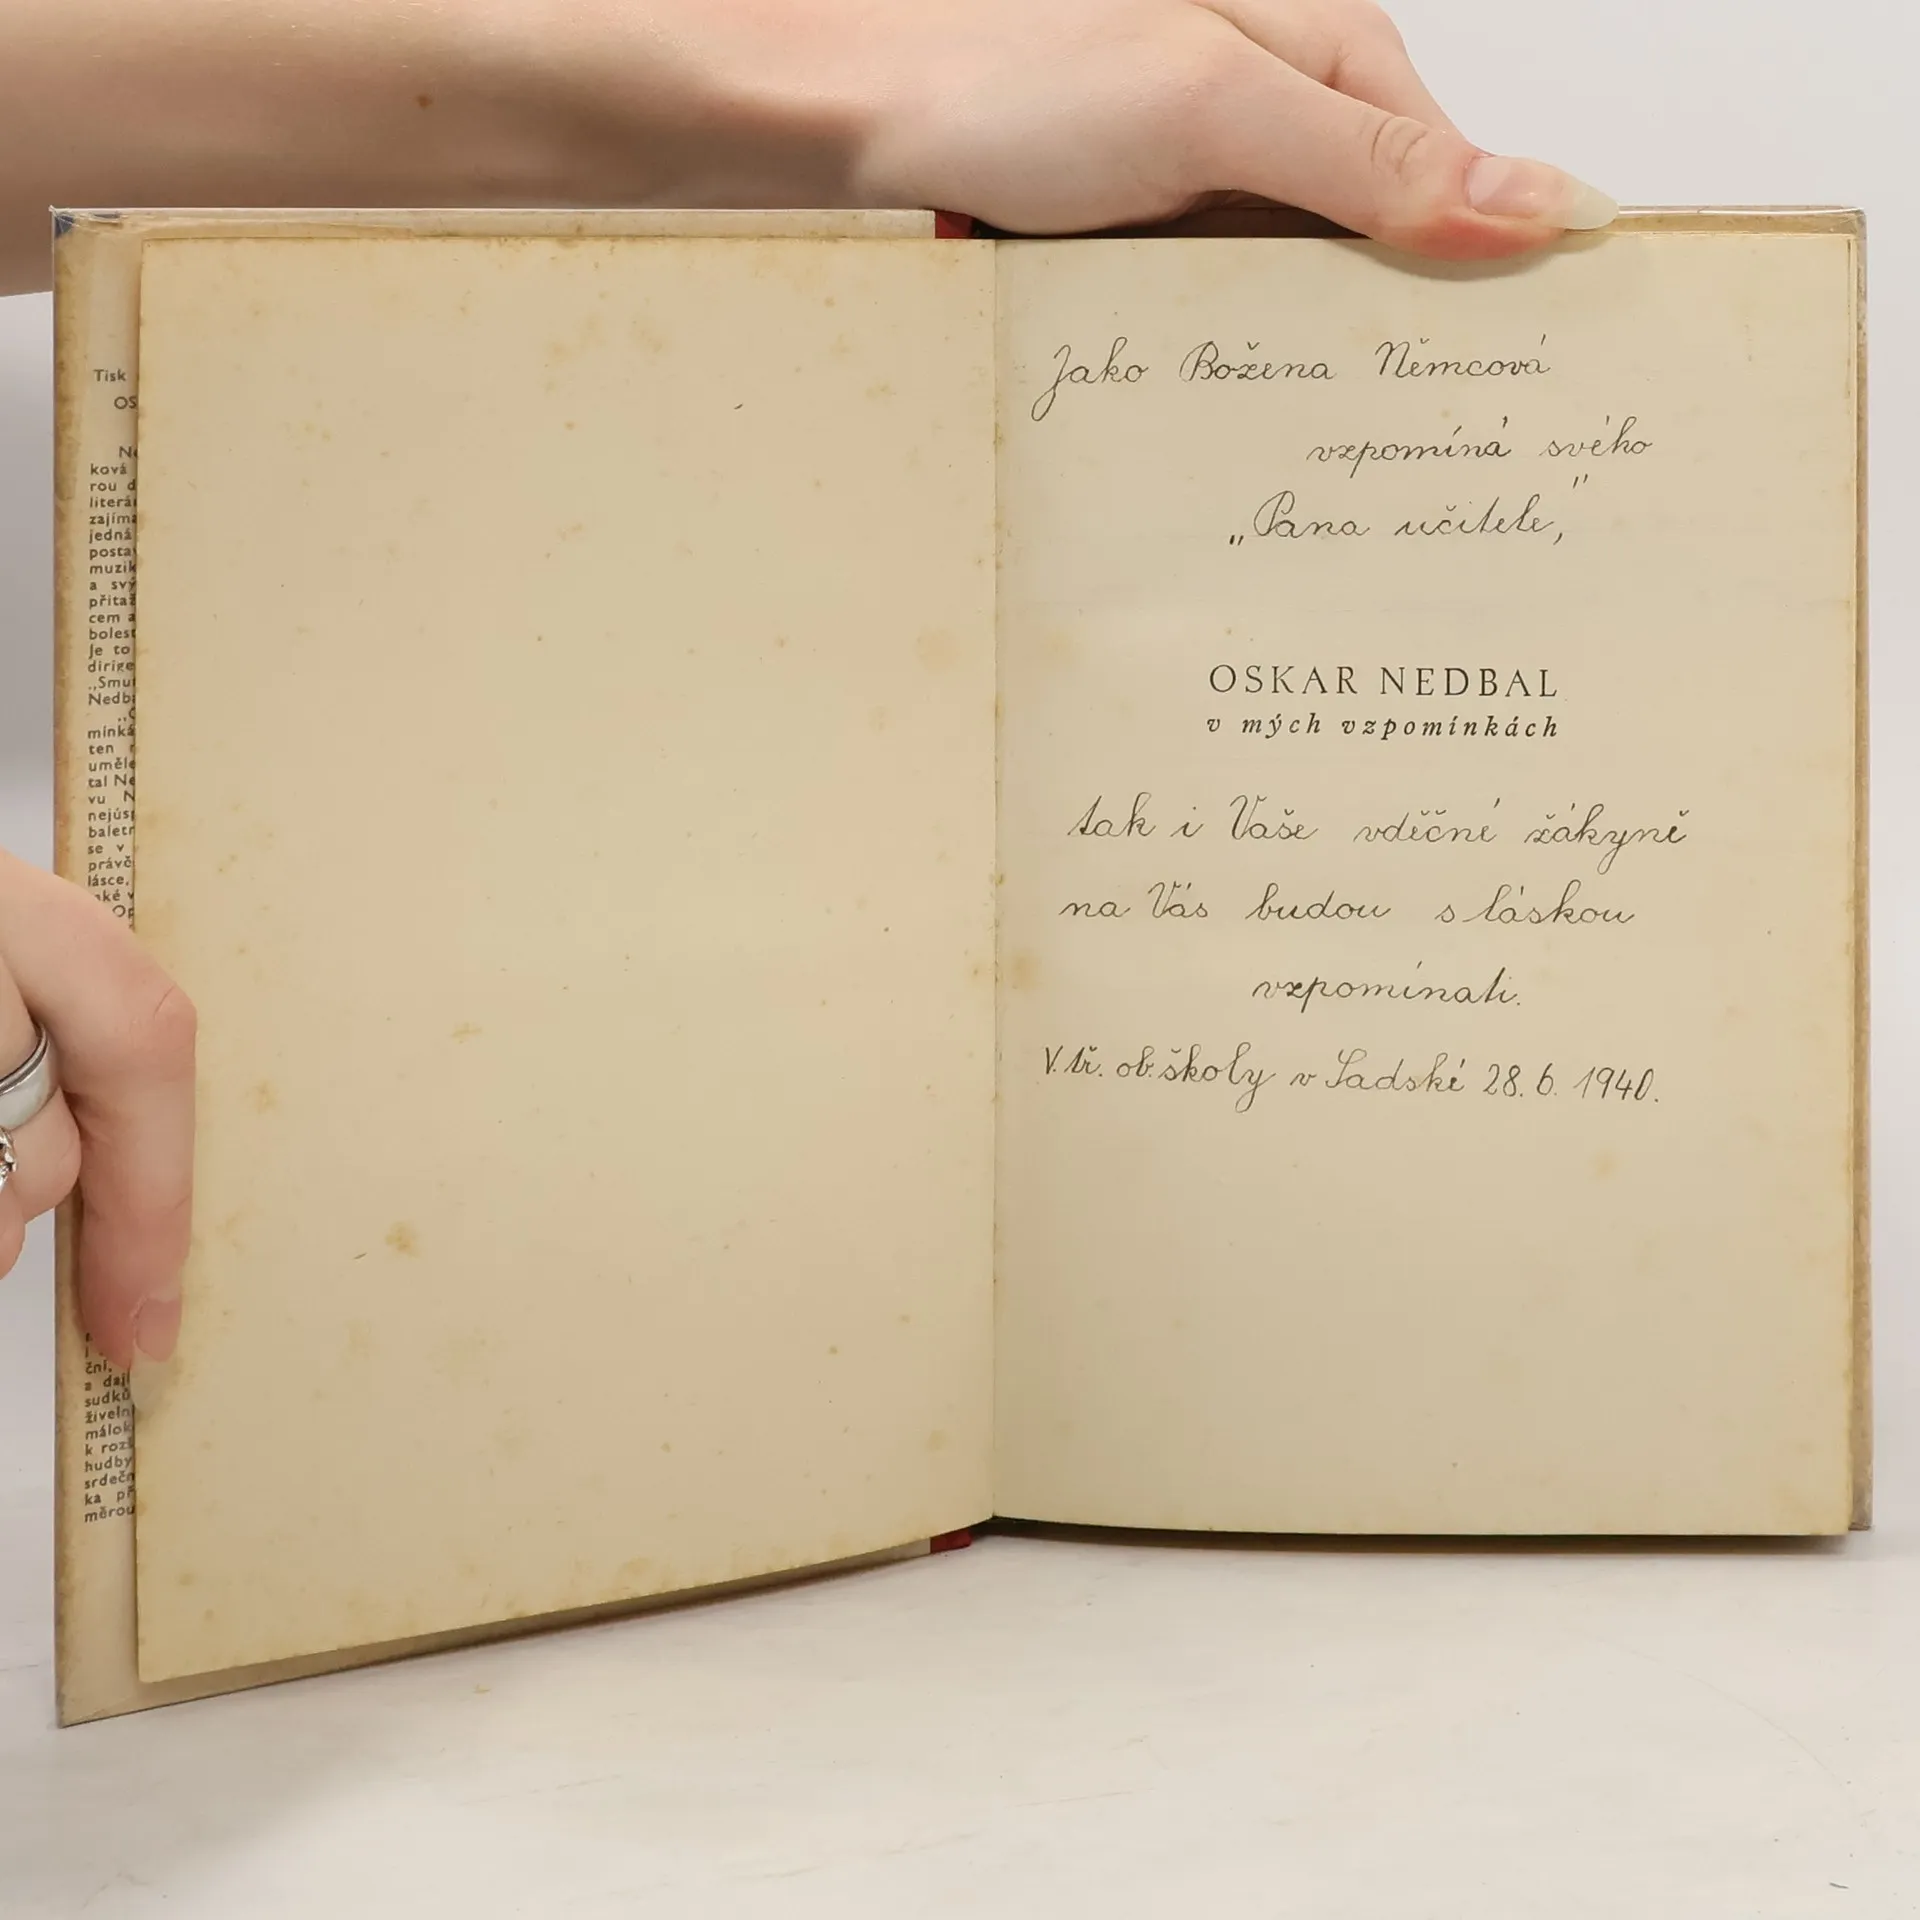 Tisk
OS
Ne
ková
rou d
literá
zajíma
jedná
posta
muzik
a svý
přitaž
cem a
bolest
Je to
dirige
„Smu
Nedba
„O
mínká
ten r
uměle
tal Ne
vu N
nejúsp
baletn
se v
právě
lásce,
aké v
Op
ční,
a dají
sudků
živeln
málok
k rozš
hudby
srdečn
ka př
měrou
Jako Božena Němcová
vzpomíná svého
„Pana učitele,"
OSKAR NEDBAL
v mých vzpomínkách
tak i Vaše vděčné žákyně
na Vás budou s láskou
vzpomínati.
V. tř. ob. školy v Sadské 28. 6. 1940.